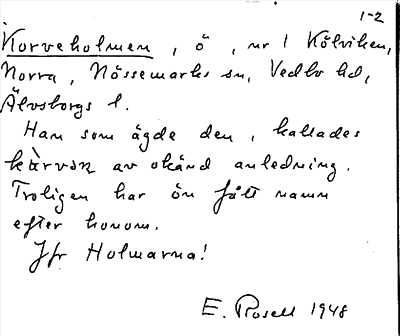 1-2
Korveholmen, ö, nr 1 Kölviken,
Norra, Nössemarks sn, Vedbo hd,
Älvsborgs l.
Han som ägde den, kallades
av okänd anledning.
Troligen har ön fått namn
efter honom.
Jfr Holmarna!
E. Rosell 1948